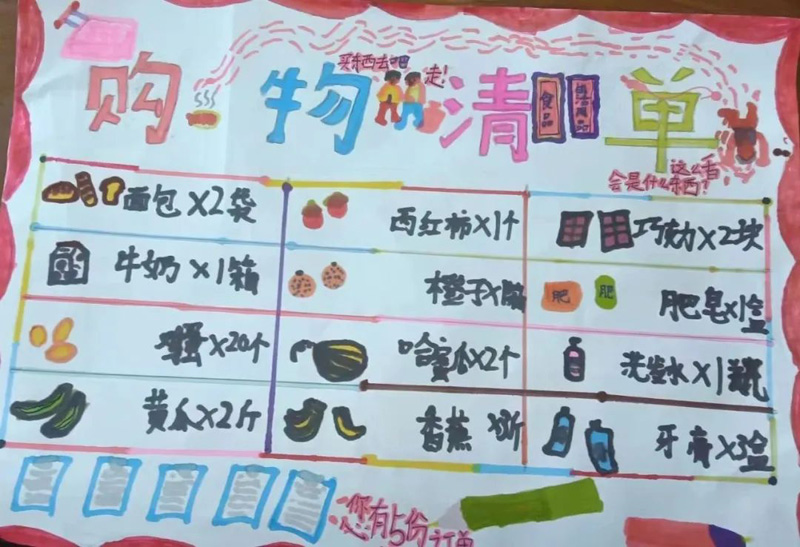 购物清单
买东西去吧
走!
食品
生活用品
这么香
会是什么东西?
面包×2袋
西红柿×1个
巧克力×2块
牛奶×1箱
橙子×1箱
肥
肥
肥皂×1盒
×20个
哈蜜瓜×2个
洗发水×1瓶
黄瓜×2斤
香蕉
牙膏×3盒
您有5份
订单